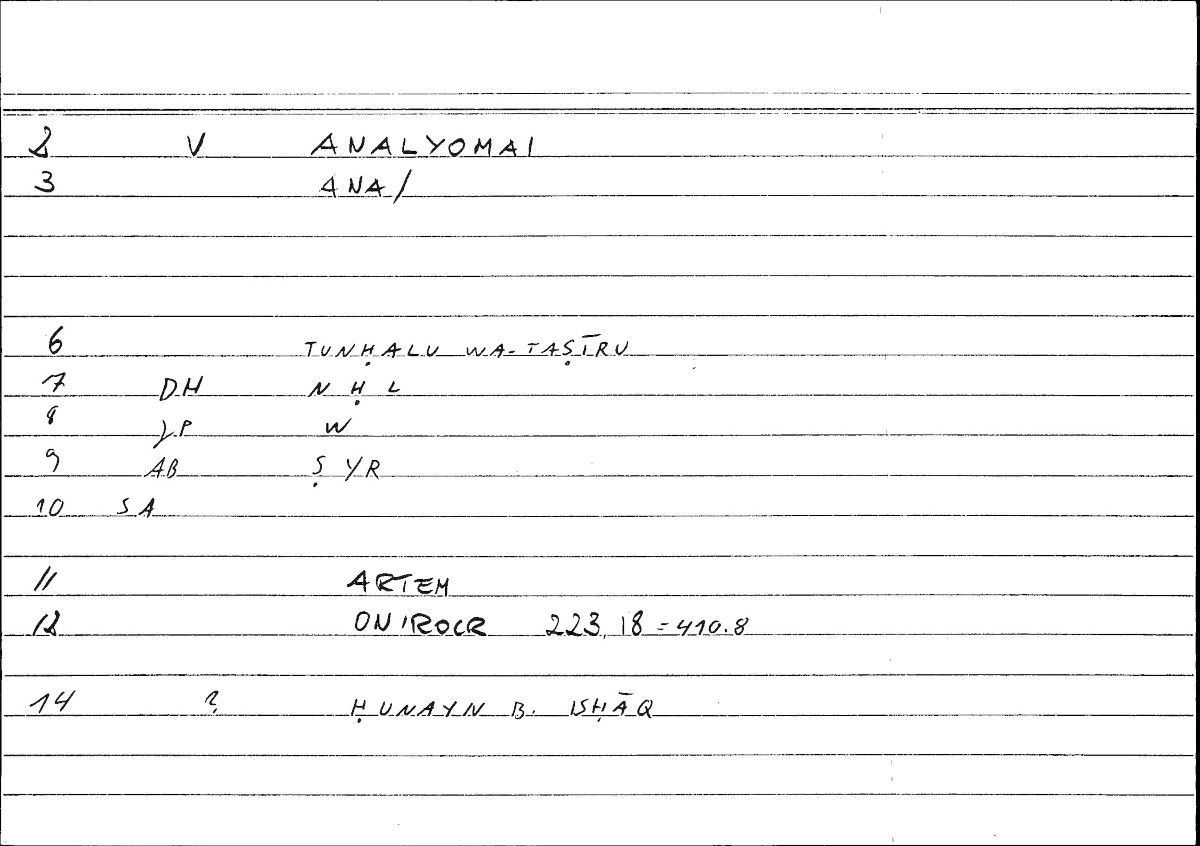 2 V ANALYOMAI
3 ANA/
6 TUNḤALU WA-TAṢĪRU
7 DH N Ḥ L
8 P W
9 AB Ṣ YR
10 SA
11 ARTEM
12 ONIROCR 223, 18 = 410.8
14 ? ḤUNAYN B. ISḤĀQ